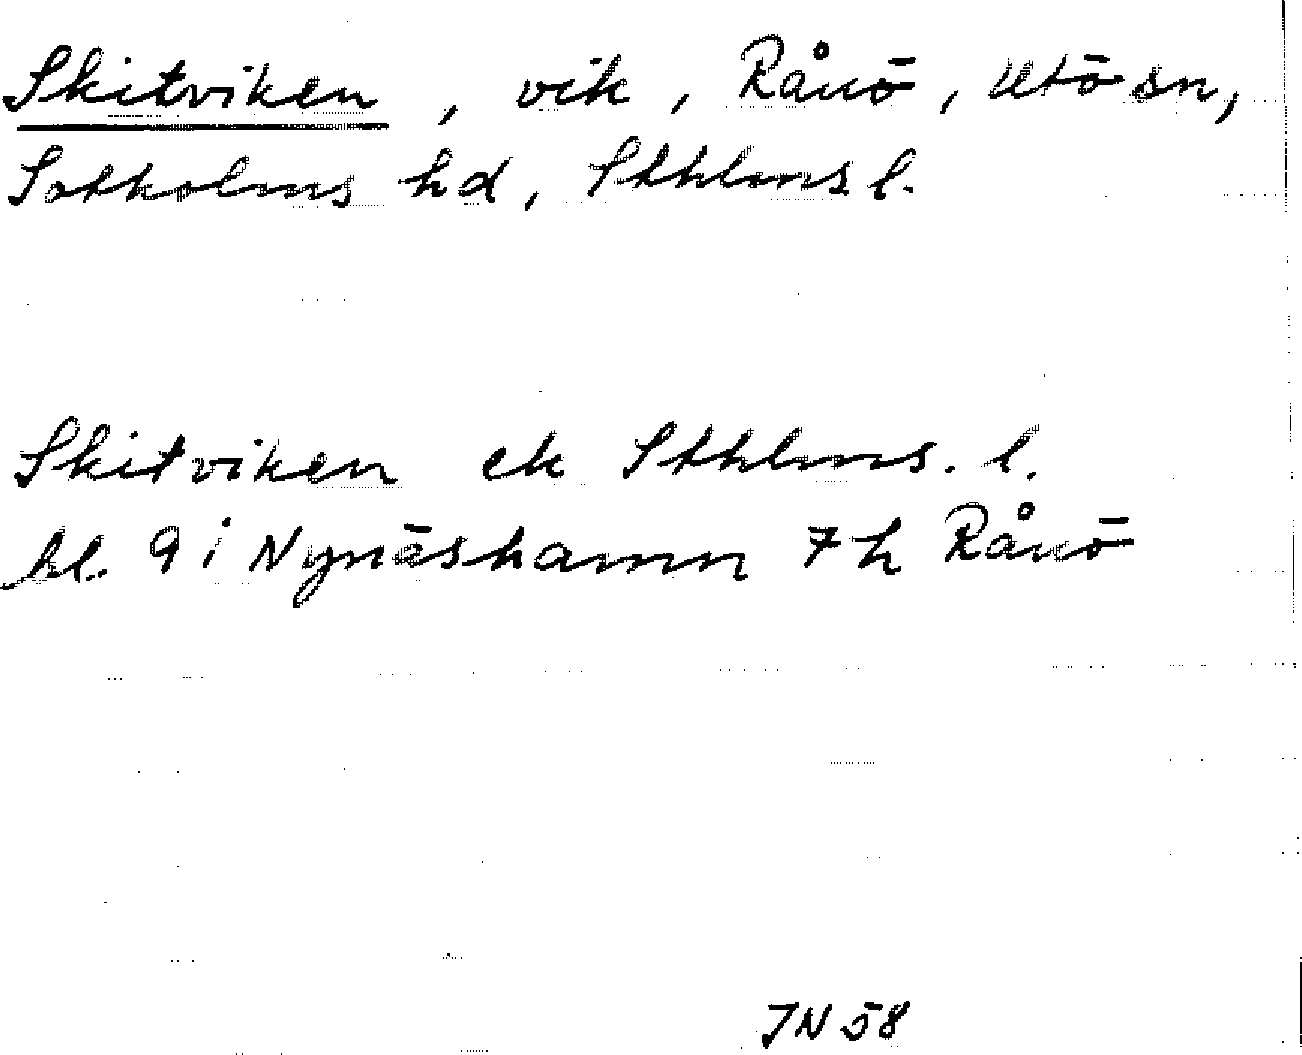 Skitviken, vik, Rånö, Utö sn,
Sotholms hd, Sthlms l.
Skitviken ek Sthlms. l.
bl. 9 i Nynäshamn 7 h Rånö
JN 58